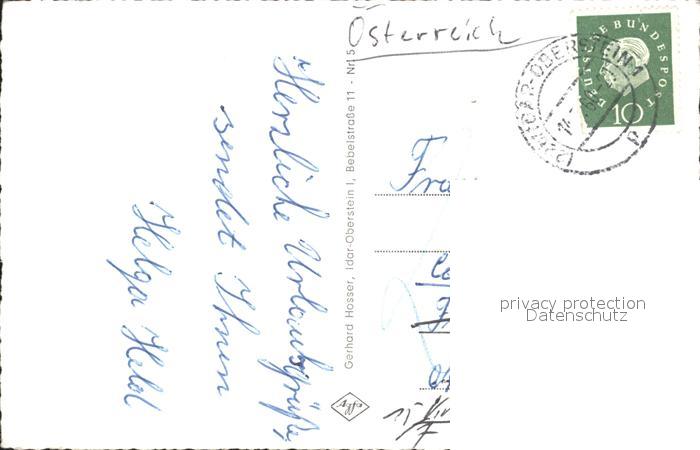 Österreich
DEUTSCHE BUNDESPOST
10
IDAR-OBERSTEIN 1
d
Herzliche Urlaubsgrüße,
sendet Ihnen
Helga Held
Gerhard Hosser, Idar-Oberstein I, Bebelstraße 11 - Nr. 5
Agfa
Fra
privacy protection
Datenschutz